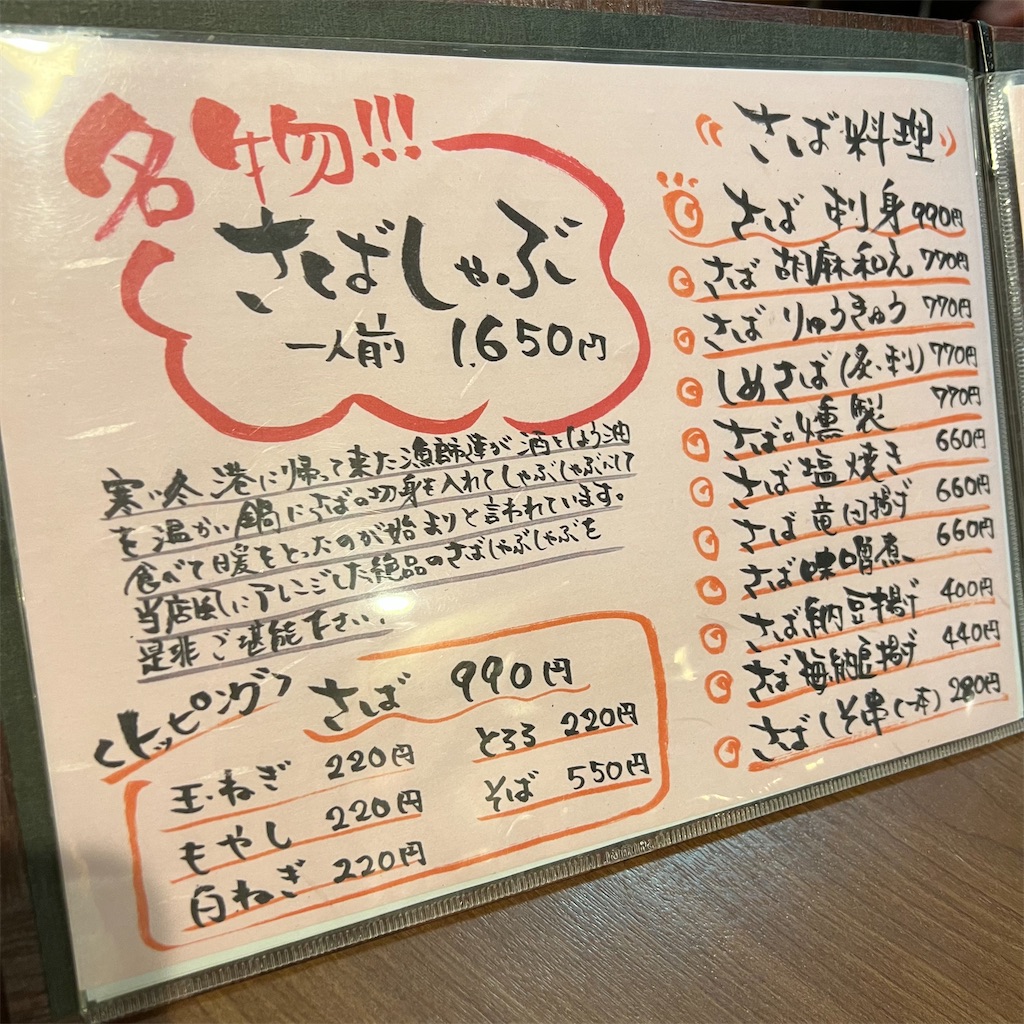 名物!!!
さばしゃぶ
一人前 1,650円
寒い冬 港に帰って来た漁師達が 酒としょう油
を温かい鍋にさばの切身を入れてしゃぶしゃぶにして
食べて暖をとったのが始まりと言われています。
当店風にアレンジした絶品のさばしゃぶしゃぶを
是非ご堪能下さい。
トッピング
さば 990円
玉ねぎ 220円
もやし 220円
白ねぎ 220円
とろろ 220円
そば 550円
さば料理
さば 刺身 990円
さば 胡麻和え 770円
さば りゅうきゅう 770円
しめさば(炙・刺) 770円
さばの燻製 770円
さば 塩焼き 660円
さば 竜田揚げ 660円
さば味噌煮 660円
さば納豆揚げ 400円
さば梅納豆揚げ 440円
さばしそ串(一本) 280円